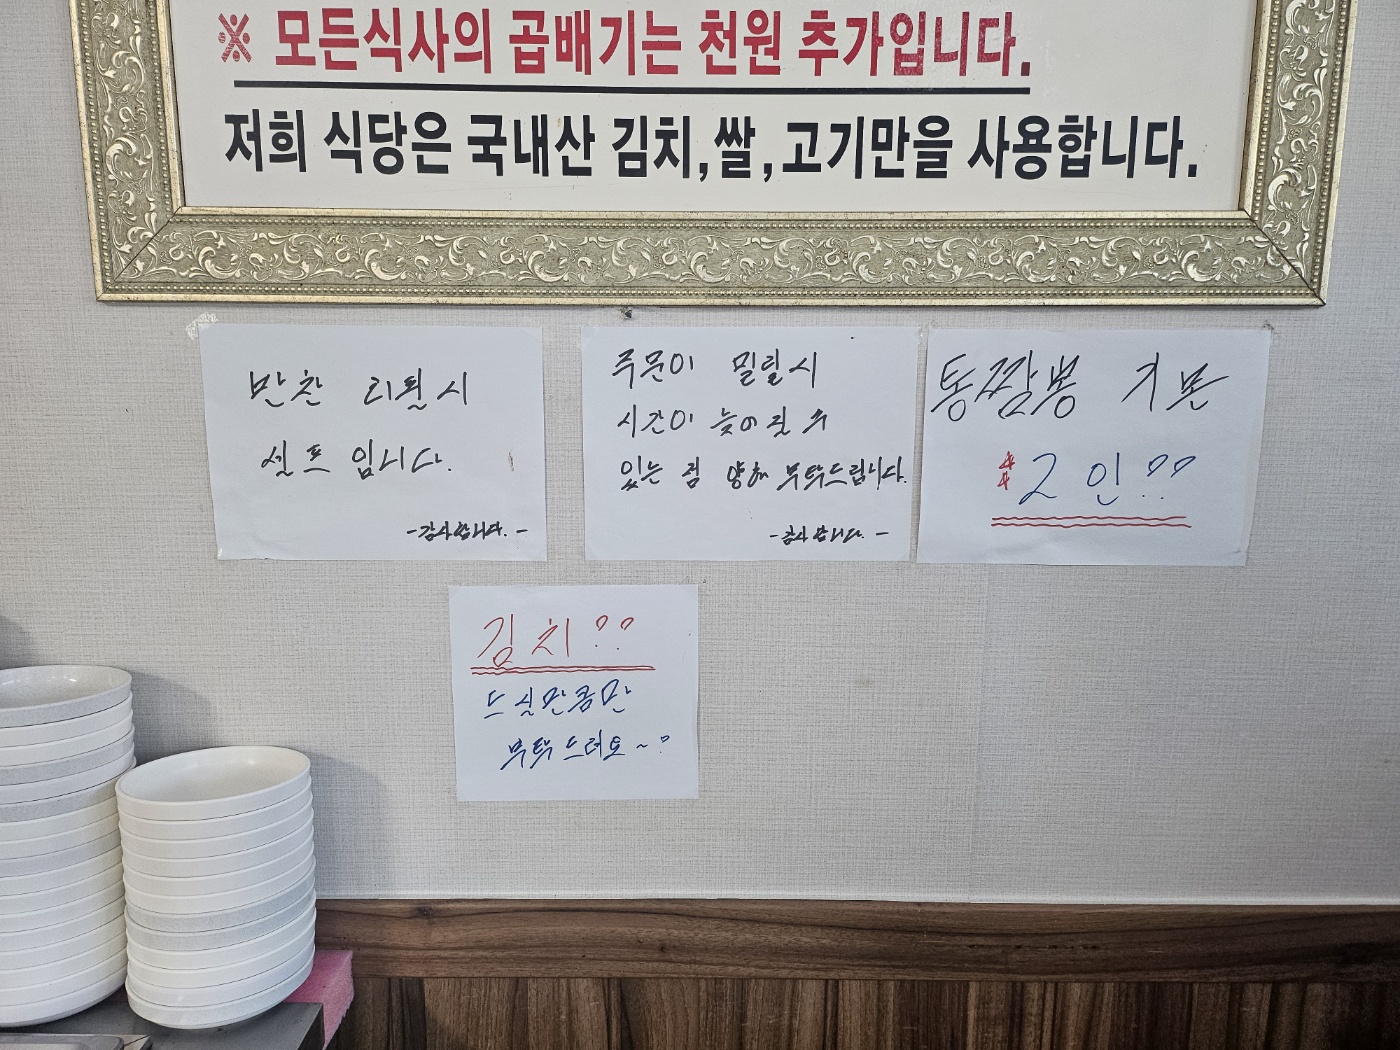 ※ 모든식사의 곱배기는 천원 추가입니다.
저희 식당은 국내산 김치,쌀,고기만을 사용합니다.
반찬 리필시
셀프 입니다.
-감사합니다.-
주문이 밀릴시
시간이 늦어질 수
있는 점 양해 부탁드립니다.
-감사합니다.-
통짬뽕 기본
2인??
김치??
드실만큼만
부탁드려요~?